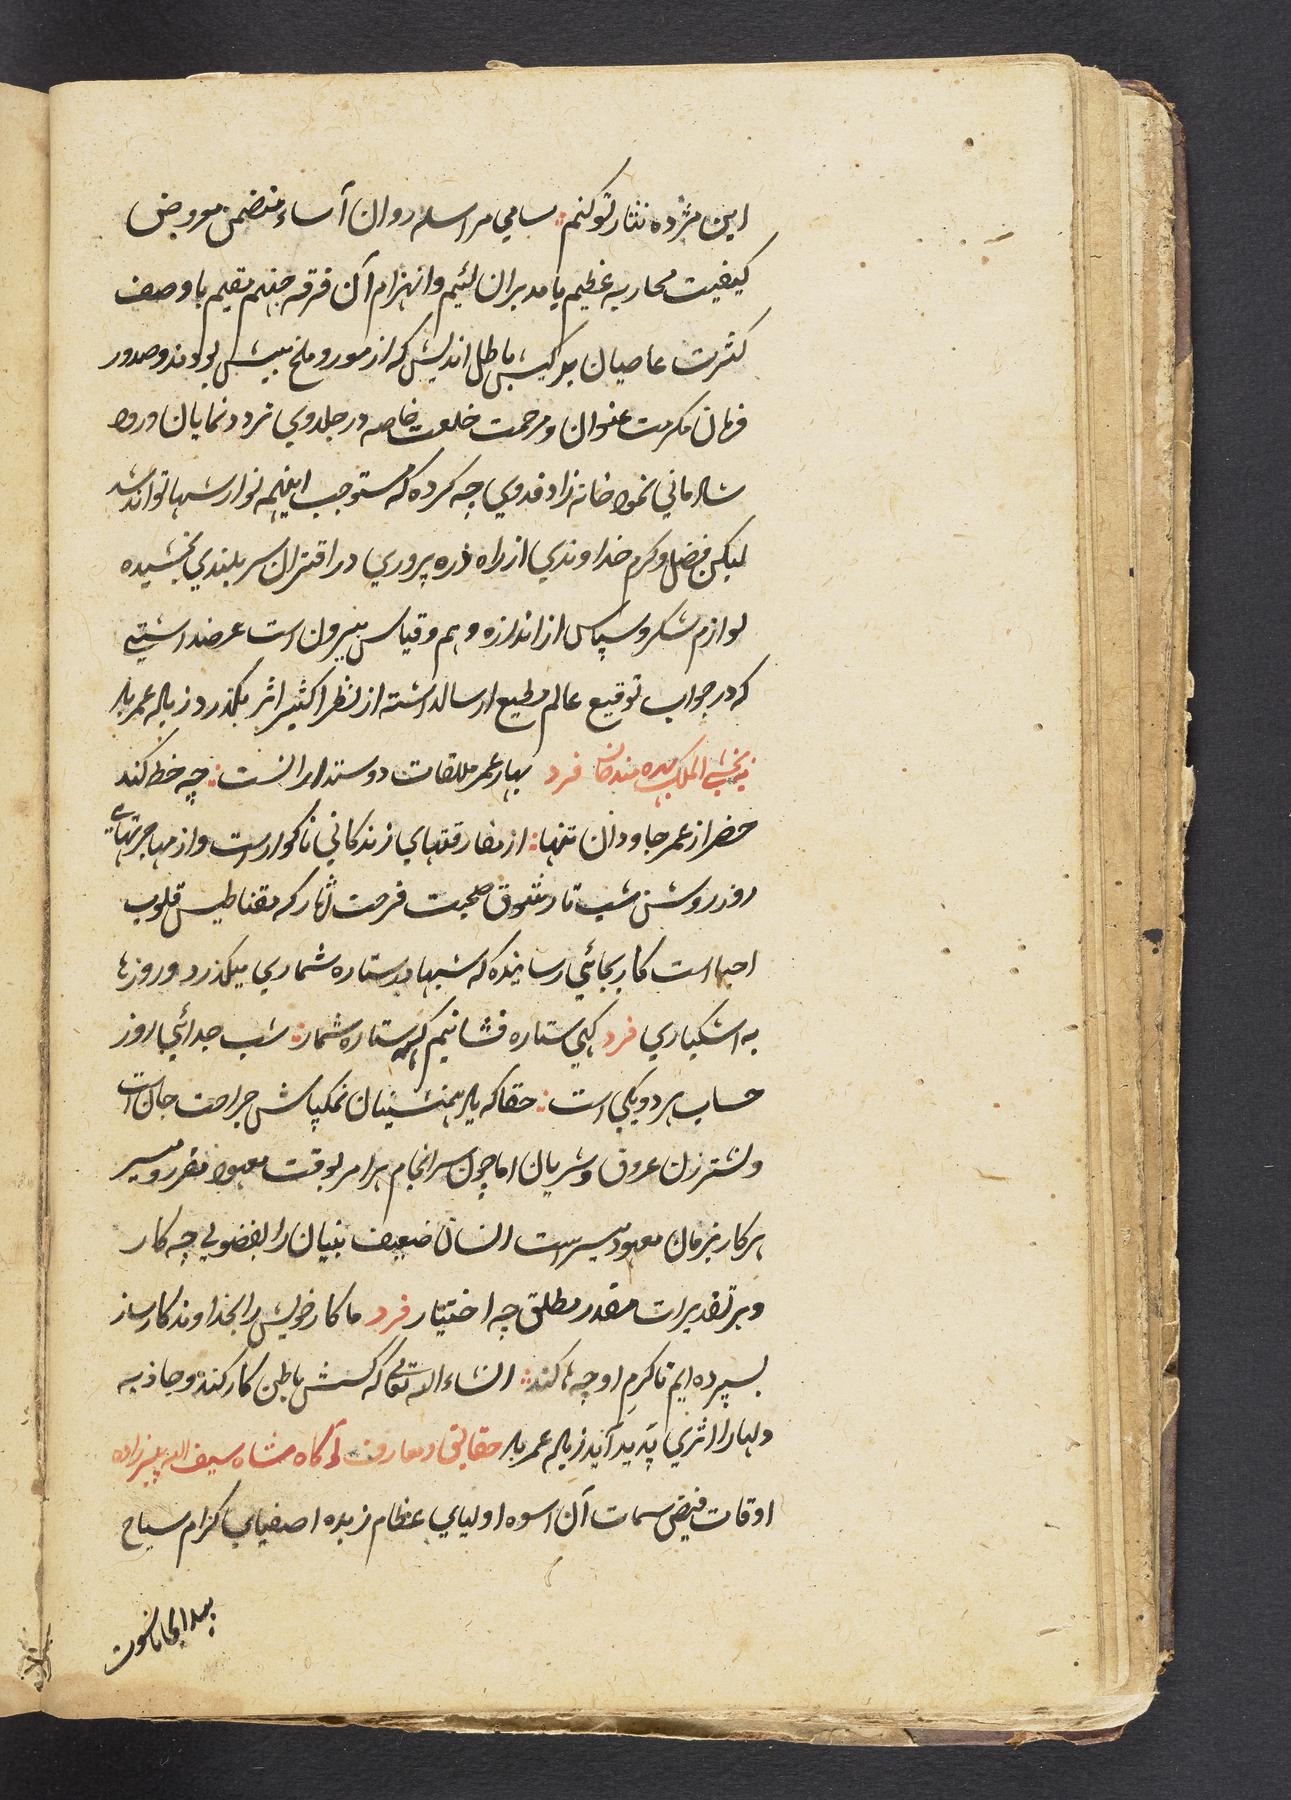 این مژده نثار تو کنم سامي مراسله روان آساء متضمن معروض
کیفیت محاربه عظیم با مدبران لئیم وانهزام آن فرقه جهنم مقیم باوصف
کثرت عاصیان بدکیش باطل اندیش که از مور و ملخ بیش بودند وصدور
فرمان مکرمت عنوان و مرحمت خلعت خاصه در جلدوي تردد نمایان ورود
شادماني نمود خانه زاد فدوي چه کرده که مستوجب اینهمه نوازشها تواند شد
لیکن فضل و کرم خداوندي از راه ذره پروري در اقتران سربلندي بخشیده
لوازم شکر و سپاس از اندازه وهم وقیاس بیرون است عرضداشتے
که در جواب توقیع عالم مطیع ارسالداشته از نظر اکثیر اثر بگذرد زیاده عمر باد
بخشي الملک مند خان فرد بهار عمر ملاقات دوستدارانست چه حظ کند
خضر از عمر جاودان تنها از مفارقتهاي زندگاني ناگوارست واز مهاجرتهاے
روز روشن شب تار شوق صحبت فرحت آثار که مقناطیس قلوب
احبا است کار بجائي رسانیده که شبها بستاره شماري میگذرد وروزها
به اشکباري فرد کهي ستاره فشانیم گه ستاره شمار شب جدائي باروز
حساب هر دویکي است حقا که یاد همنشینان نمکپاش جراحت جان است
ونشترزن عروق وشریان اما چون سرانجام هر امر بوقت معهود مقرر و میسر
هر کار بزمان معهود میسر است انسان ضعیف بنیان را بفضولي چه کار
وبر تقدیرات مقدر مطلق چه اختیار فرد ما کار خویش را بخداوند کارساز
بسپرده ایم تا کرم او چها کند انشاء الله تعالی که کشش باطن کار کند و جاذبه
دلها را اثري پدید آید زیاده عمر باد حقایق ومعارف آگاه شاه سیف الله پیرزاده
اوقات فیض سمات آن اسوه اولیاي عظام زبده اصفیاي کرام سیاح